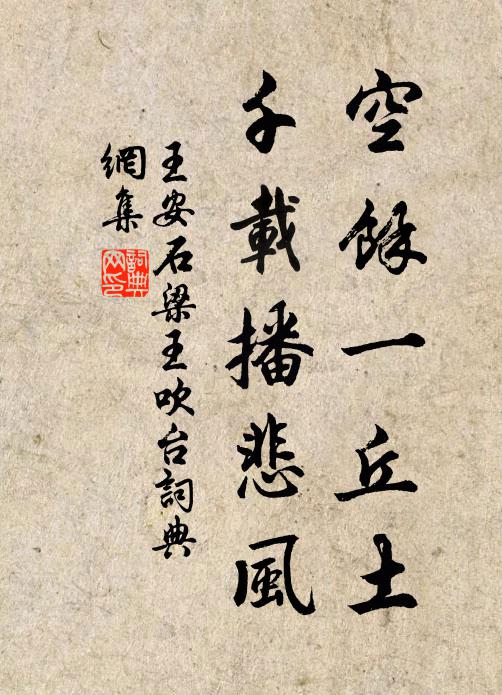 空餘一丘土
千載播悲風
王安石梁王吹台詞典
網集
詞典
网印